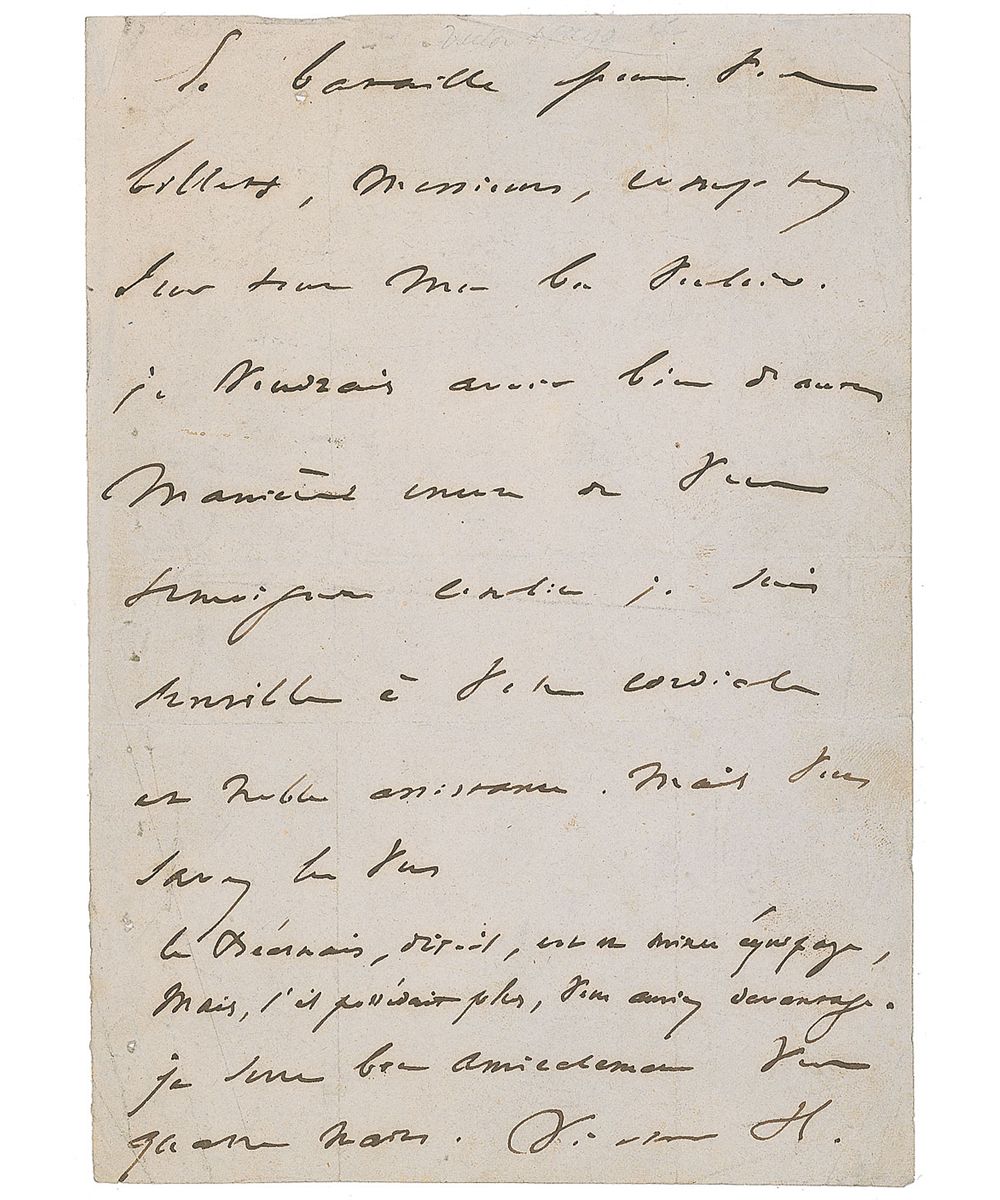 Victor Hugo
Je travaille pour vos
billets, Messieurs, comptez
sur moi.
je voudrais avoir bien d'autres
manières encore de vous
témoigner combien je suis
sensible à votre cordiale
et noble assistance. Mais vous
savez les vers
le Béarnais, disait, est en mince équipage,
Mais, s'il possédait plus, vous auriez davantage.
je serre bien amicalement vos
quatre mains. Victor H.